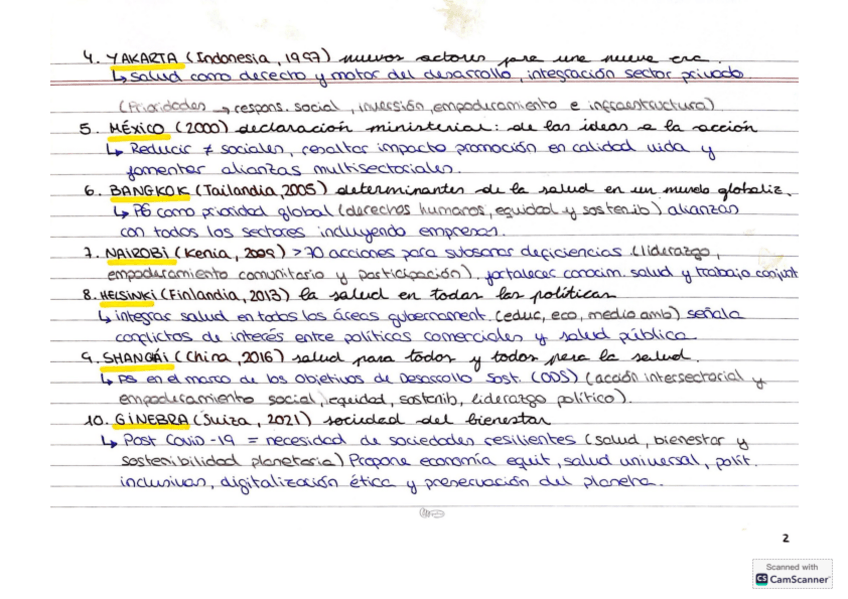 4. YAKARTA (Indonesia, 1997) nuevos actores para una nueva era.
↳ Salud como derecho y motor del desarrollo, integración sector privado
(Prioridades → respons. social, inversión, empoderamiento e infraestructura)
5. MÉXICO (2000) declaración ministerial: de las ideas a la acción
↳ Reducir ≠ sociales, resaltar impacto promoción en calidad vida y
fomentar alianzas multisectoriales.
6. BANGKOK (Tailandia, 2005) determinantes de la salud en un mundo globaliz.
↳ PS como prioridad global (derechos humanos, equidad y sostenib) alianzas
con todos los sectores incluyendo empresas.
7. NAIROBI (Kenia, 2009) >70 acciones para subsanar deficiencias (liderazgo,
empoderamiento comunitario y participación). fortalecer conocim. salud y trabajo conjunt
8. HELSINKI (Finlandia, 2013) la salud en todas las políticas
↳ integrar salud en todas las áreas gubernament. (educ, eco, medio amb) señala
conflictos de interés entre políticas comerciales y salud pública.
9. SHANGÁI (China, 2016) salud para todos y todos para la salud.
↳ PS en el marco de los Objetivos de Desarrollo Sost. (ODS) (acción intersectorial y
empoderamiento social, equidad, sostenib, liderazgo político).
10. GINEBRA (Suiza, 2021) sociedad del bienestar
↳ Post Covid-19 = necesidad de sociedades resilientes (salud, bienestar y
sostenibilidad planetaria) Propone economía equit, salud universal, polít.
inclusivas, digitalización ética y preservación del planeta.
2
Scanned with
CS CamScanner